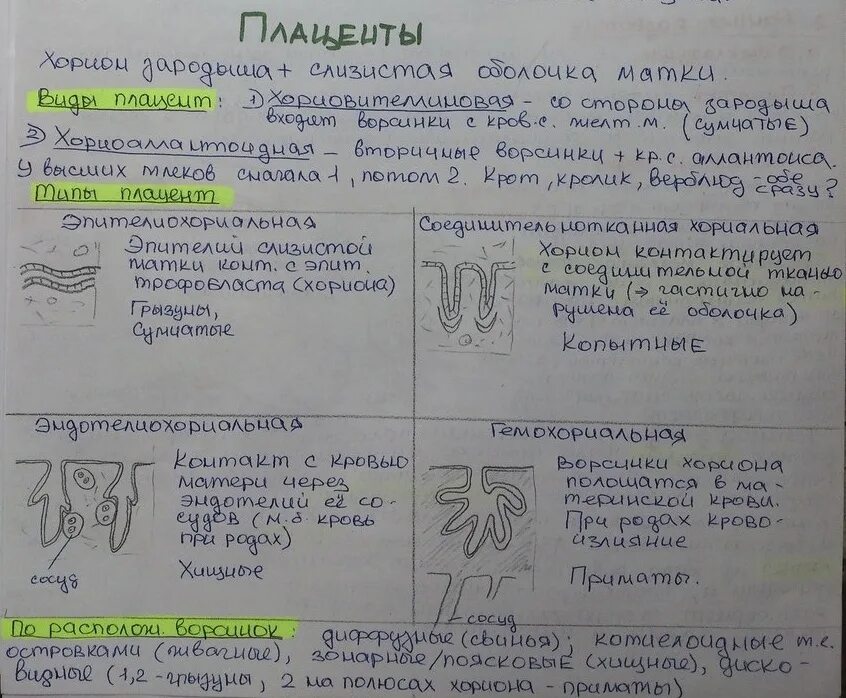 Плаценты
Хорион зародыша + слизистая оболочка матки.
Виды плацент: 1) Хориовителлиновая - со стороны зародыша
входят ворсинки с кров. с. желт. м. (сумчатые)
2) Хориоаллантоидная - вторичные ворсинки + кр. с. аллантоиса.
У высших млеков сначала 1, потом 2. Крот, кролик, верблюд - обе сразу?
Типы плацент
Эпителиохориальная
Эпителий слизистой
матки конт. с эпит.
трофобласта (хориона)
Грызуны,
Сумчатые
Соединительнотканная хориальная
Хорион контактирует
с соединительной тканью
матки (→ частично на-
рушена её оболочка)
Копытные
Эндотелиохориальная
Контакт с кровью
матери через
эндотелий её со-
судов (м.б. кровь
при родах)
Хищные
сосуд
Гемохориальная
Ворсинки хориона
полощатся в ма-
теринской крови.
При родах крово-
излияние
Приматы.
сосуд
По располож. ворсинок: диффузные (свинья); котиелоидные т.е.
островками (жвачные), зонарные/поясковые (хищные), диско-
видные (1,2 - грызуны, 2 на полюсах хориона - приматы)